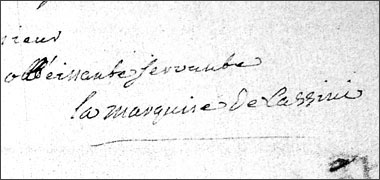 sieur
obbeissante servante
la marquise de Cassini